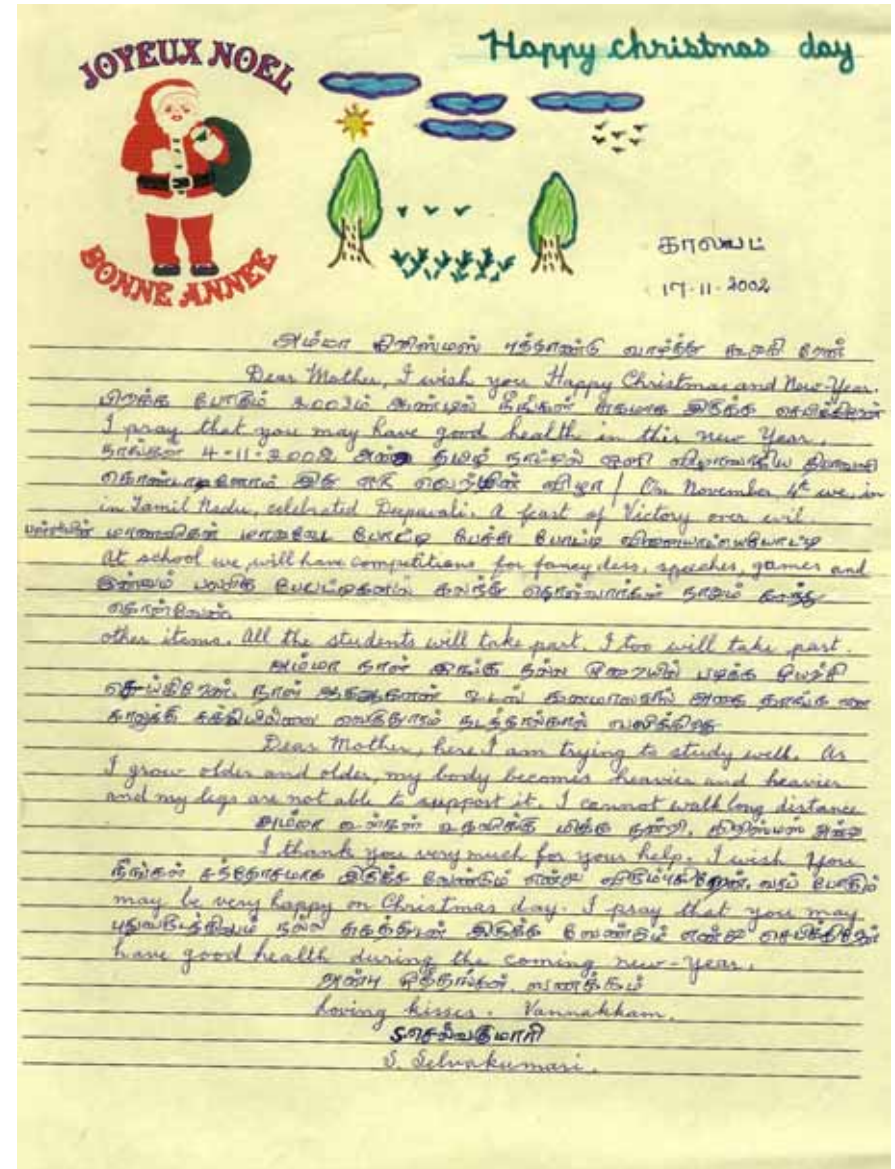 JOYEUX NOEL
Happy christmas day
BONNE ANNEE
17-11-2002
அம்மா கிறிஸ்மஸ் புத்தாண்டு வாழ்த்து கூறுகி றேன்
Dear Mother, I wish you Happy Christmas and New-Year.
பிறக்க போகும் 2003ம் ஆண்டில் நீங்கள் சுகமாக இருக்க செபிக்கிறேன்
I pray that you may have good health in this new Year.
நாங்கள் 4-11-2002 அன்று தமிழ் நாட்டில் ஒளி விழாவாகிய தீபாவளி
கொண்டாடினோம் இது ஒரு வெற்றியின் விழா! On November 4th we, in
in Tamil Nadu, celebrated Deepavali. A feast of Victory over evil.
மாணவிகள் மாறுவேட போட்டி பேச்சு போட்டி விளையாட்டுபோட்டி
At school we will have competitions for fancy dess, speeches, games and
இன்னும் பலவித போட்டிகளில் கலந்து கொள்வார்கள் நானும் கலந்து
கொள்வேன்
other items. All the students will take part. I too will take part.
அம்மா நான் இங்கு நல்ல முறையில் படிக்க முயற்சி
செய்கிறேன். நான் உடல் அதை தாங்க என
காலுக்கு சக்தியில்லை வெகுதூரம் நடந்தால்கால் வலிக்கிறது
Dear Mother, here I am trying to study well. As
I grow older and older, my body becomes heavier and heavier
and my legs are not able to support it. I cannot walk long distance
அம்மா உங்கள் உதவிக்கு மிக்க நன்றி. கிறிஸ்மஸ் அன்று
I thank you very much for your help. I wish You
நீங்கள் சந்தோசமாக இருக்க வேண்டும் என்று விரும்புகிறேன். வரப் போகும்
may be very happy on Christmas day. I pray that you may
புதுவருடத்திலும் நல்ல சுகத்துடன் இருக்க வேண்டும் என்று செபிக்கிறேன்
have good health during the coming new-Year.
அன்பு முத்தங்கள். வணக்கம்
Loving kisses. Vannakkam.
S.செல்வகுமாரி
S. Selvakumari.